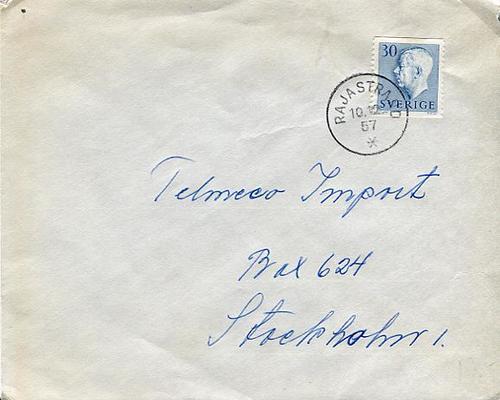 30
SVERIGE
RAJASTRAND
10.12
57
Telmeco Import
Box 624
Stockholm 1.